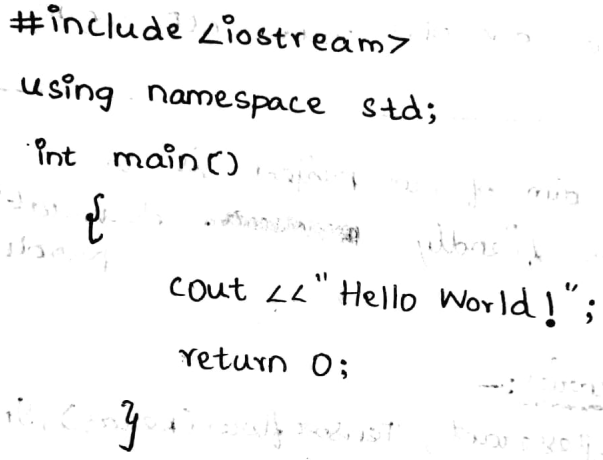 #include <iostream>
using namespace std;
int main()
{
cout <<"Hello World!";
return 0;
}